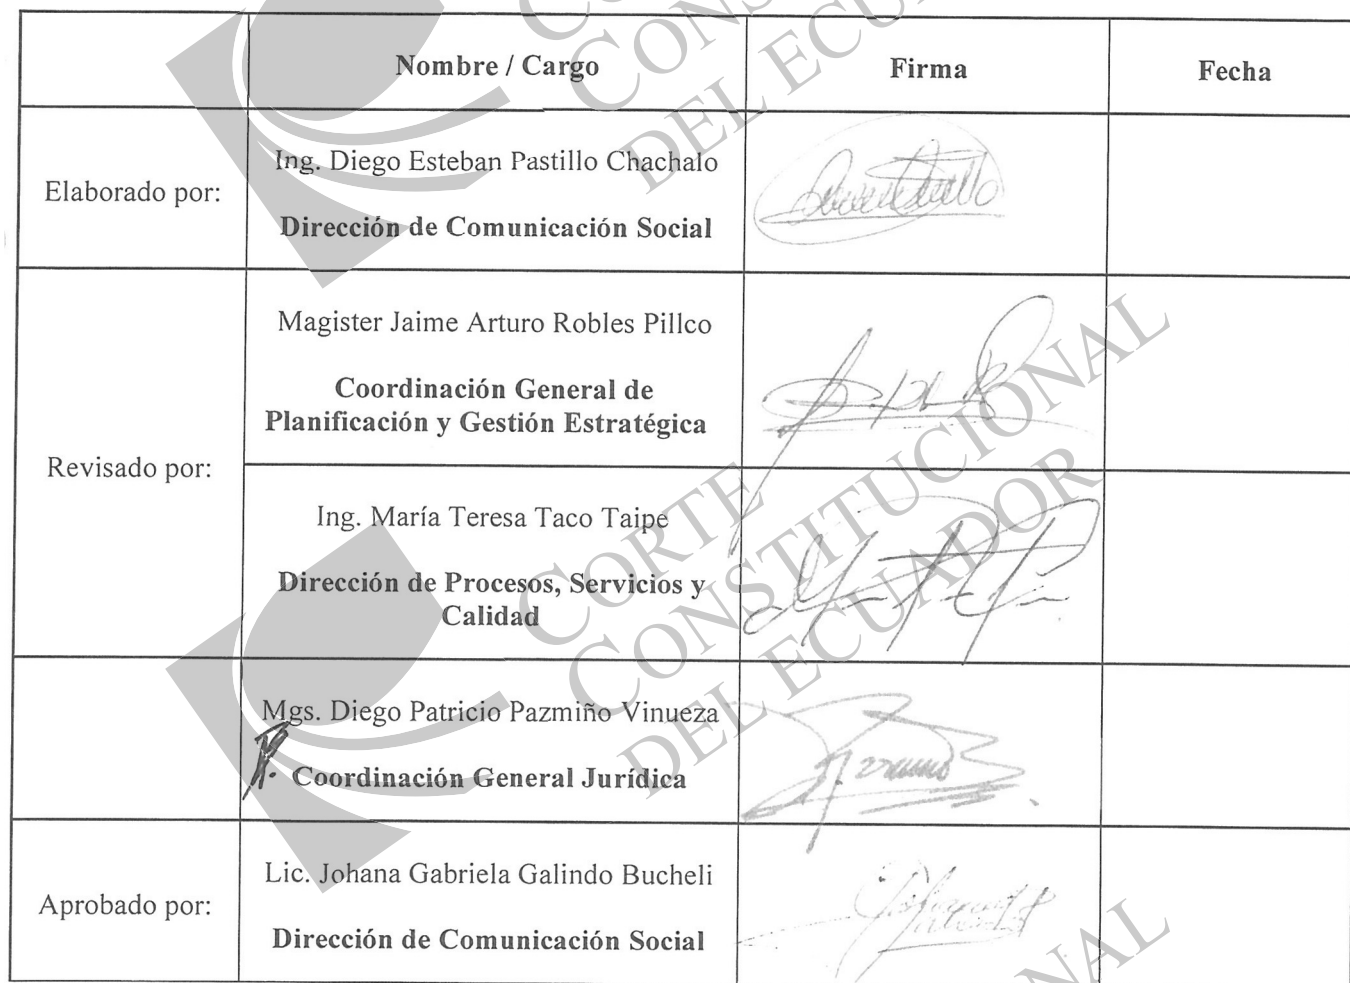 Nombre / Cargo
Firma
Fecha
Elaborado por:
Ing. Diego Esteban Pastillo Chachalo
Dirección de Comunicación Social
Revisado por:
Magister Jaime Arturo Robles Pillco
Coordinación General de
Planificación y Gestión Estratégica
Ing. María Teresa Taco Taipe
Dirección de Procesos, Servicios y
Calidad
Mgs. Diego Patricio Pazmiño Vinueza
Coordinación General Jurídica
Aprobado por:
Lic. Johana Gabriela Galindo Bucheli
Dirección de Comunicación Social
CORTE
CONSTITUCIONAL
DEL ECUADOR